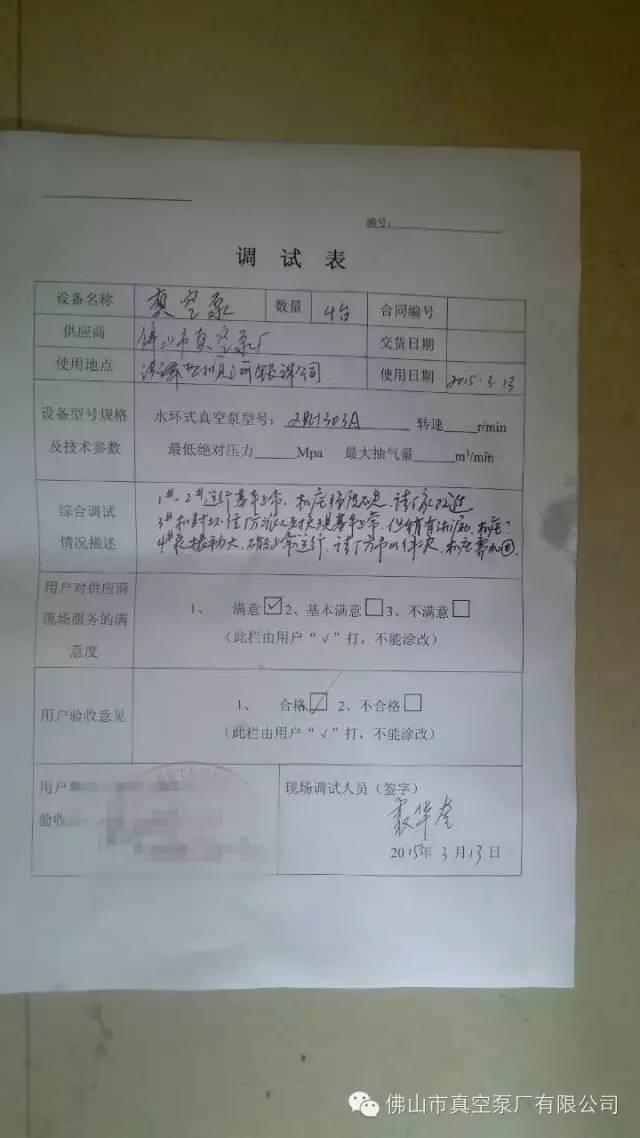 编号：
调 试 表
设备名称 真空泵 数量 4台 合同编号
供应商 佛山市真空泵厂 交货日期
使用地点 使用日期 2015.3.13
设备型号规格及技术参数
水环式真空泵型号：2BE1303A 转速 r/min
最低绝对压力 Mpa 最大抽气量 m³/min
综合调试情况描述
1#、2#运行基本正常、机座强度不足、请厂家改进
3#
4#振动大、正常运行、请厂方
用户对供应商现场服务的满意度
1、 满意☑2、基本满意□3、不满意□
（此栏由用户“√”打，不能涂改）
用户验收意见
1、 合格☑ 2、不合格□
（此栏由用户“√”打，不能涂改）
用户
验收
现场调试人员（签字）
2015年3月13日
佛山市真空泵厂有限公司